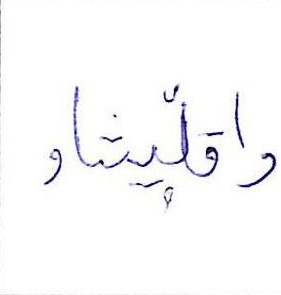 واقلّيشاو